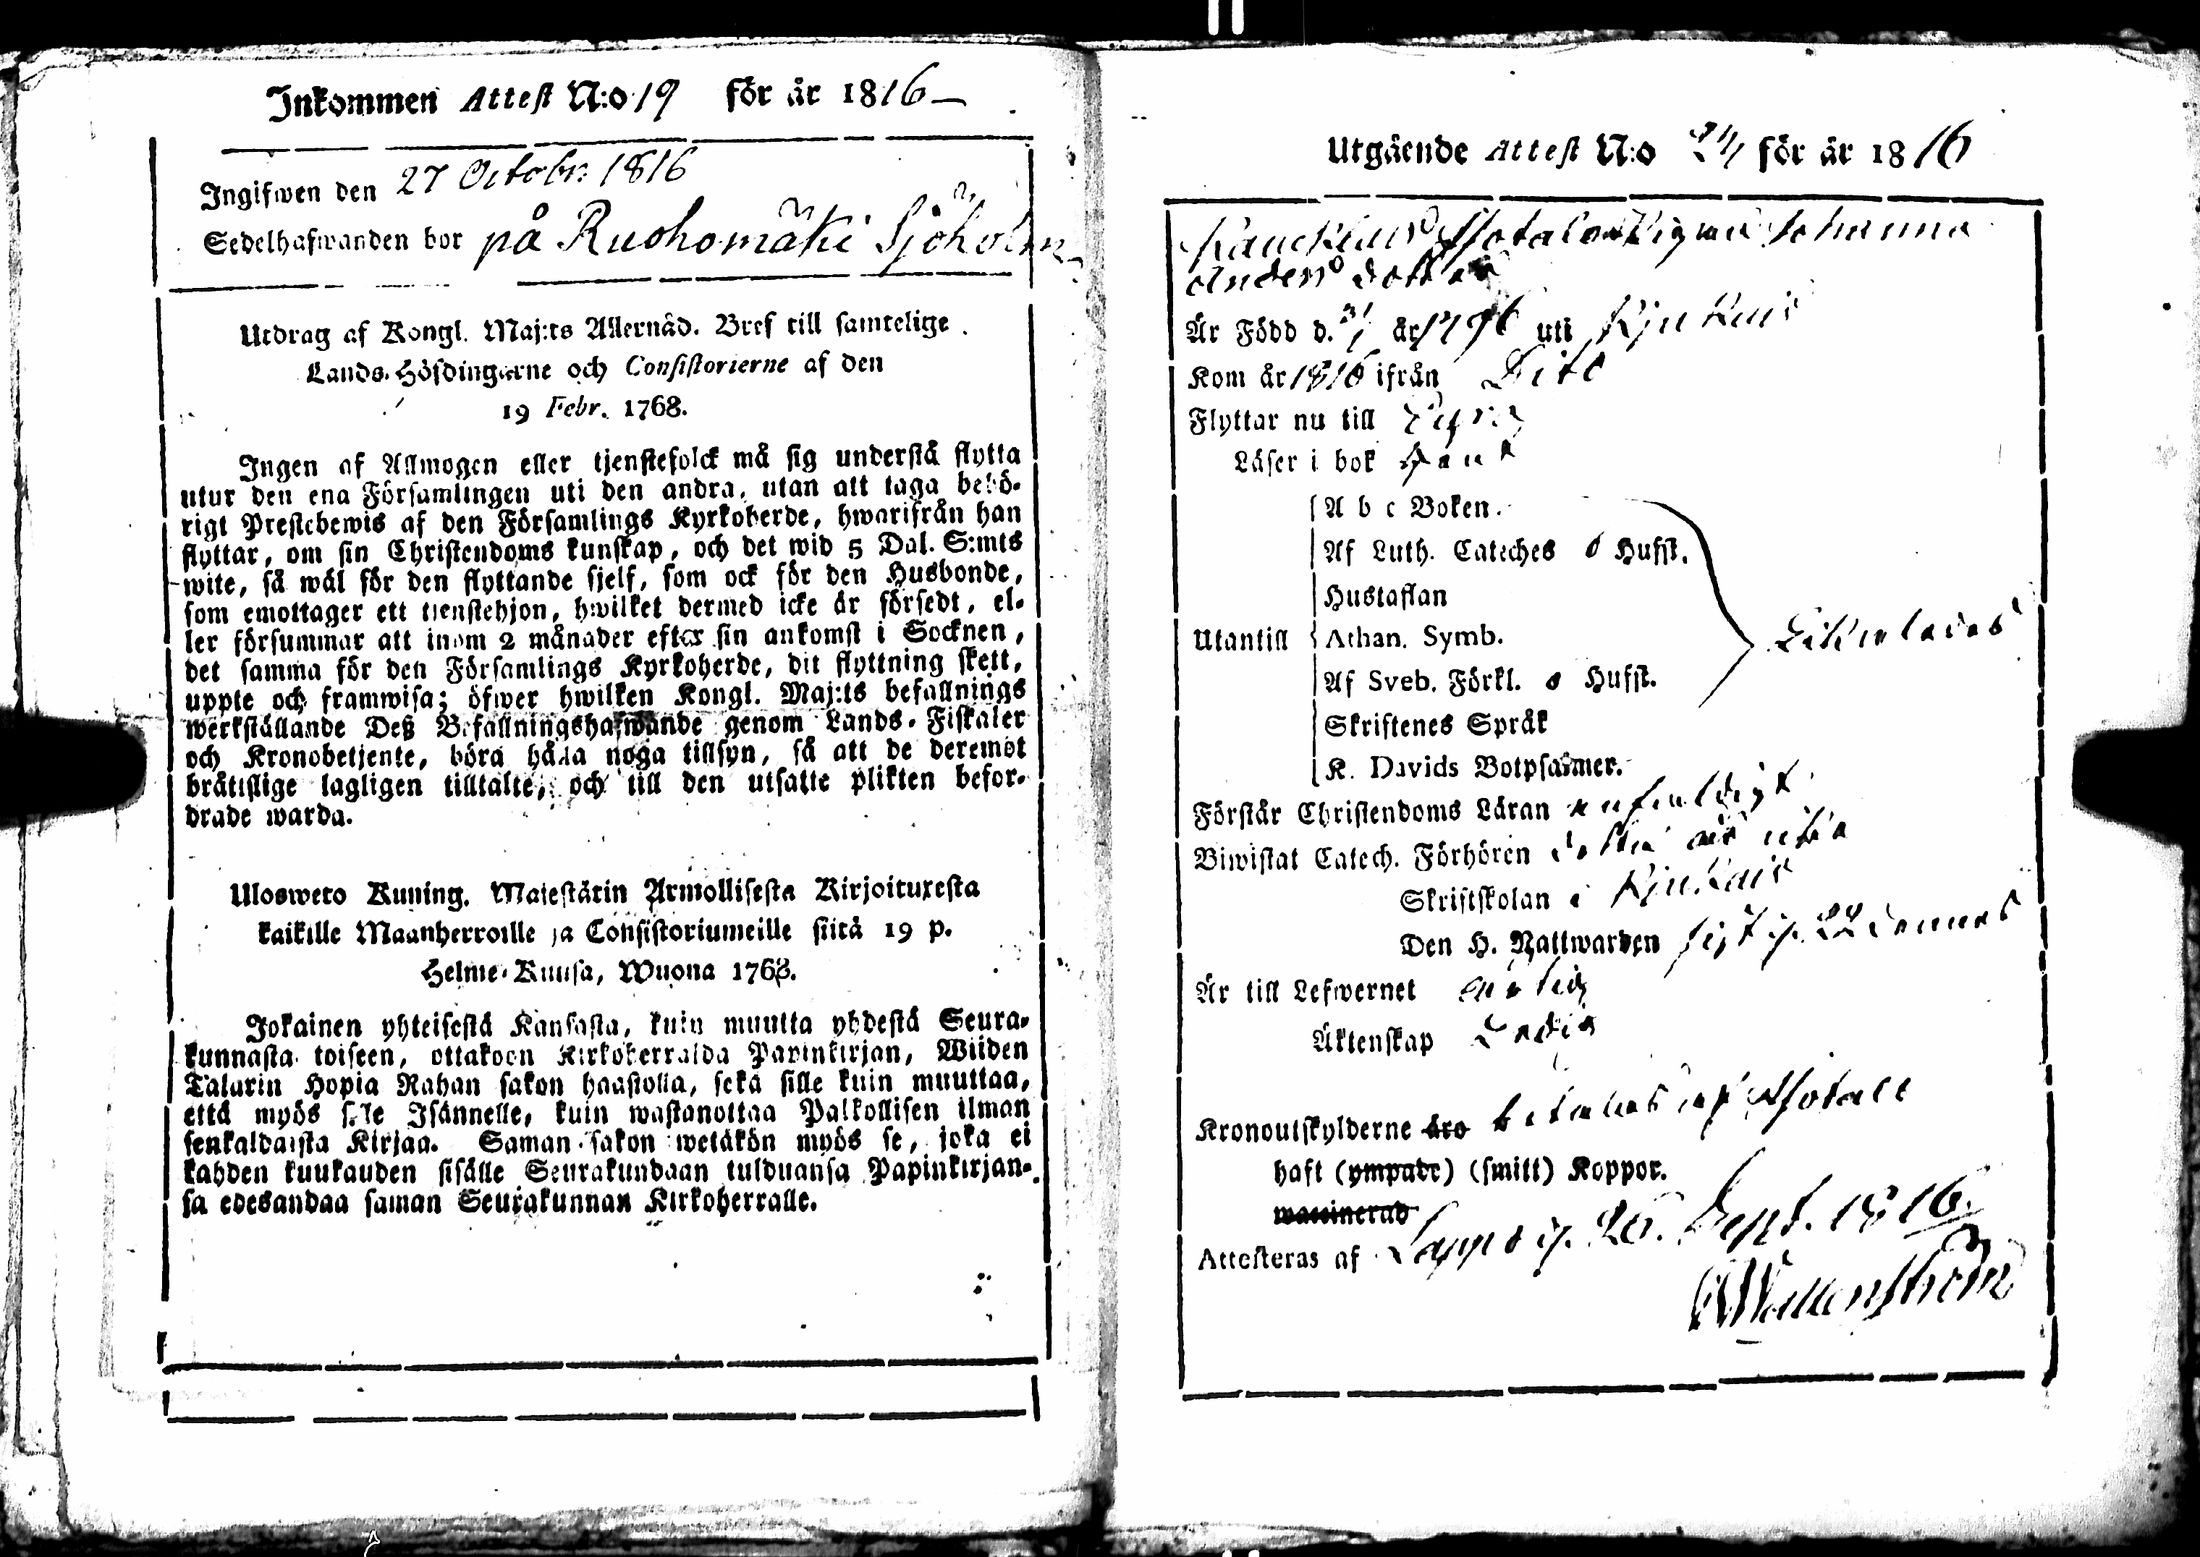 Inkommen Attest N:o 19 för år 1816
Ingifwen den 27 Octobr: 1816
Sedelhafwanden bor på Ruohomäki Sjöholm
Utdrag af Kongl. Maj:ts Allernåd. Bref till samtelige
Lands-Höfdingarne och Consistorierne af den
19 Febr. 1768.
Ingen af Allmogen eller tjenstefolck må sig understå flytta
utur den ena Församlingen uti den andra, utan att taga behö-
rigt Prestebewis af den Församlings Kyrkoherde, hwarifrån han
flyttar, om sin Christendoms kunskap, och det wid 5 Dal. S:mts
wite, så wäl för den flyttande sjelf, som ock för den Husbonde,
som emottager ett tienstehjon, hwilket dermed icke är försedt, el-
ler försummar att inom 2 månader efter sin ankomst i Socknen,
det samma för den Församlings Kyrkoherde, dit flyttning skett,
uppte och framwisa; öfwer hwilken Kongl. Maj:ts befallnings
werkställande Deß Befallningshafwande genom Lands-Fiskaler
och Kronobetjente, böra hålla noga tillsyn, så att de deremot
bråtislige lagligen tilltalte, och till den utsatte plikten befor-
drade warda.
Ulosweto Kuning. Majestärin Armollisesta Kirjoituxesta
kaikille Maanherroille ja Consistoriumeille siitä 19 p.
Helme-Kuusa, Wuona 1768.
Jokainen yhteisestä Kansasta, kuin muutta yhdestä Seura-
kunnasta toiseen, ottakoon Kirkoherralda Papinkirjan, Wiiden
Talarin Hopia Rahan sakon haastolla, sekä sille kuin muuttaa,
että myös sille Isännelle, kuin wastanottaa Palkollisen ilman
senkaldaista Kirjaa. Saman sakon wetäkön myös se, joka ei
kahden kuukauden sisälle Seurakundaan tulduansa Papinkirjan-
sa edesandaa saman Seurakunnan Kirkoherralle.
Utgående Attest N:o 24 för år 1816
Johanna
Anders dotter
Är Född d. år 1796 uti Kjukais
Kom år 1816 ifrån Dito
Flyttar nu till
Läser i bok
A b c Boken.
Af Luth. Cateches 6 Hufst.
Hustaflan
Utantill Athan. Symb.
Af Sveb. Förkl. 6 Hufst.
Skriftenes Språk
K. Davids Botpsalmer.
Förstår Christendoms Läran enfaldigt
Biwistat Catech. Förhören
Skriftskolan i Kjukais
Den H. Nattwarden sist d. 22 dennes
Är till Lefwernet
Äktenskap Ledig
Kronoutskylderne äro betalas af
haft (ympade) (smitt) Koppor.
waccinerad
Attesteras af Lappo d. 26. Sept. 1816.
Wallenström